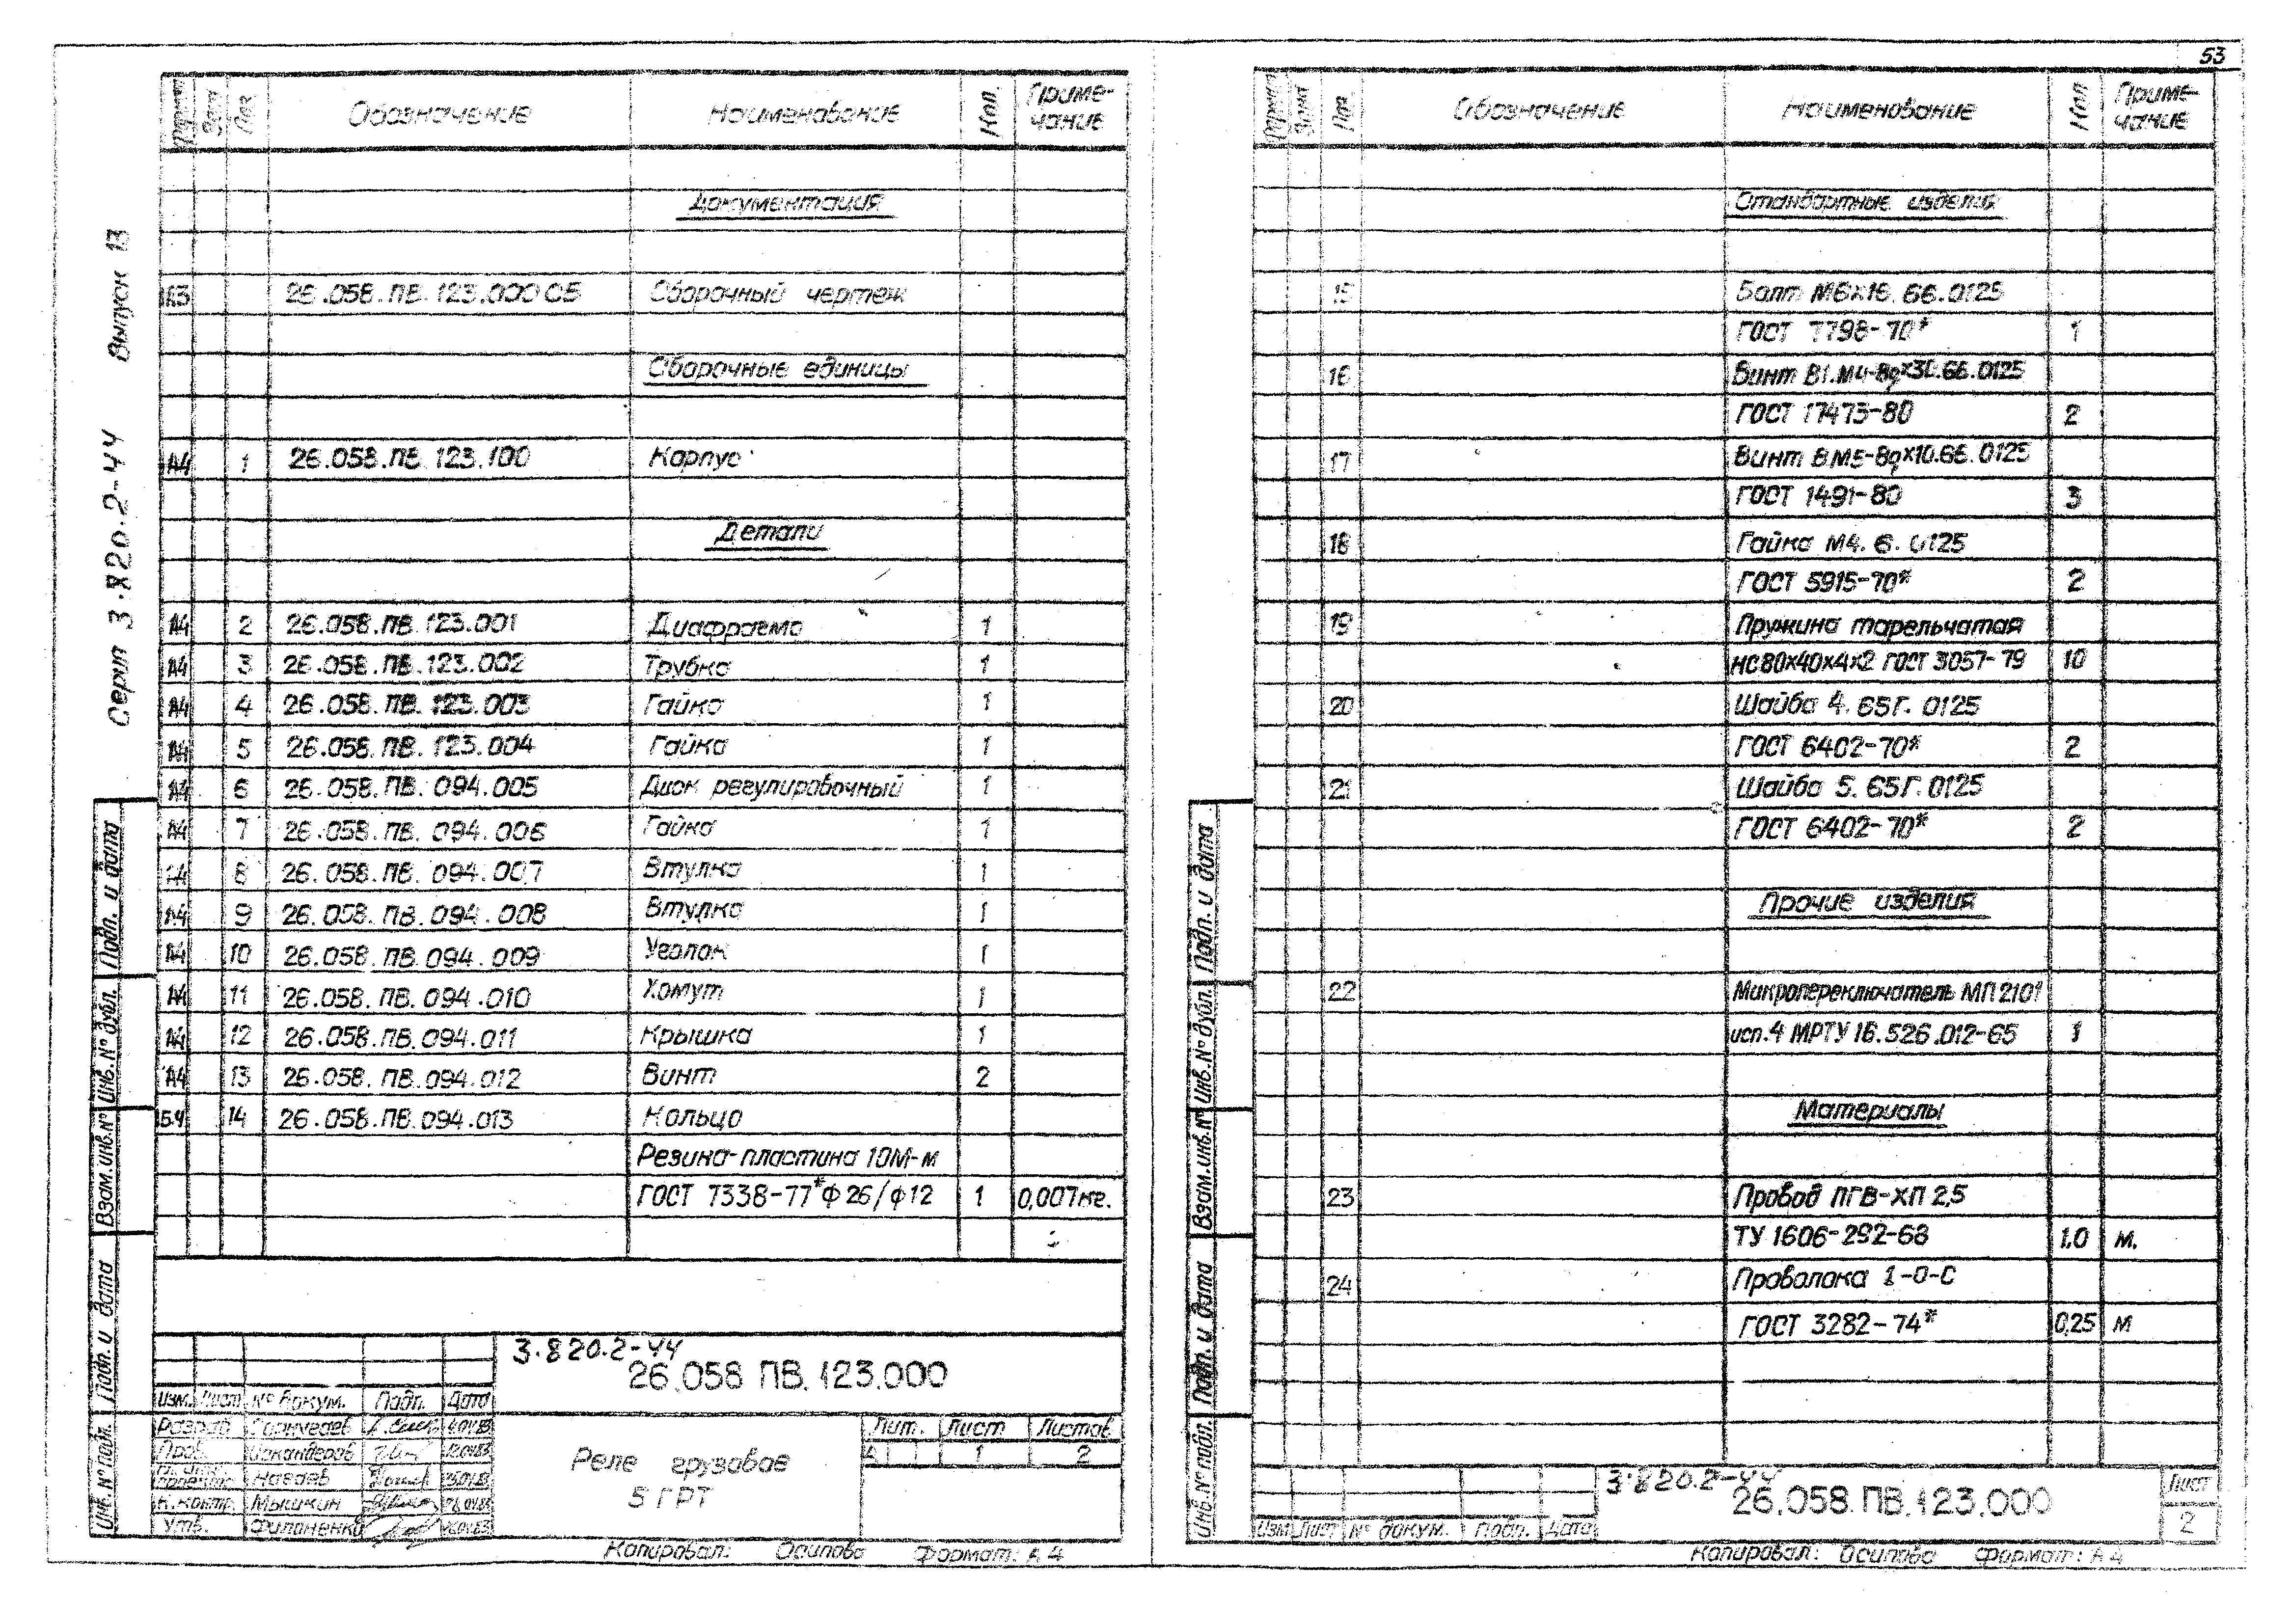 53
Серия 3.820.2-44 Выпуск 13
Формат Зона Поз. Обозначение Наименование Кол. Приме-
чание
Документация
А3 26.058.ПВ.123.000 СБ Сборочный чертеж
Сборочные единицы
А4 1 26.058.ПВ.123.100 Корпус
Детали
А4 2 26.058.ПВ.123.001 Диафрагма 1
А4 3 26.058.ПВ.123.002 Трубка 1
А4 4 26.058.ПВ.123.003 Гайка 1
А4 5 26.058.ПВ.123.004 Гайка 1
А4 6 26.058.ПВ.094.005 Диск регулировочный 1
А4 7 26.058.ПВ.094.006 Гайка 1
А4 8 26.058.ПВ.094.007 Втулка 1
А4 9 26.058.ПВ.094.008 Втулка 1
А4 10 26.058.ПВ.094.009 Уголок 1
А4 11 26.058.ПВ.094.010 Хомут 1
А4 12 26.058.ПВ.094.011 Крышка 1
А4 13 26.058.ПВ.094.012 Винт 2
Б.Ч 14 26.058.ПВ.094.013 Кольцо
Резина-пластина 10М-м
ГОСТ 7338-77* ф26/ф12 1 0,007кг.
Инв.№ подл. Подп. и дата Взам.инв.№ Инв.№ дубл. Подп. и дата
3.820.2-44
26.058 ПВ.123.000
Изм. Лист № докум. Подп. Дата
Разраб.
Пров. Искандеров
Нагаев
Н.контр. Мышкин
Утв. Филоненко
Реле грузовое
5 ГРТ
Лит. Лист Листов
А 1 2
Копировал: Осипова Формат: А4
Формат Зона Поз. Обозначение Наименование Кол. Приме-
чание
Стандартные изделия
15 Болт М6×16.66.0125
ГОСТ 7798-70* 1
16 Винт В1.М4-8g×30.66.0125
ГОСТ 17473-80 2
17 Винт ВМ5-8g×10.66.0125
ГОСТ 1491-80 3
18 Гайка М4.6.0125
ГОСТ 5915-70* 2
19 Пружина тарельчатая
НС80×40×4×2 ГОСТ 3057-79 10
20 Шайба 4.65Г.0125
ГОСТ 6402-70* 2
21 Шайба 5.65Г.0125
ГОСТ 6402-70* 2
Прочие изделия
22 Микропереключатель МП2101
исп.4 МРТУ 16.526.012-65 1
Материалы
23 Провод ПГВ-ХП 2,5
ТУ 1606-292-68 1.0 м.
24 Проволока 1-О-С
ГОСТ 3282-74* 0,25 м
Инв.№ подл. Подп. и дата Взам.инв.№ Инв.№ дубл. Подп. и дата
3.820.2-44
26.058.ПВ.123.000
Лист
2
Изм. Лист № докум. Подп. Дата
Копировал: Осипова Формат: А4